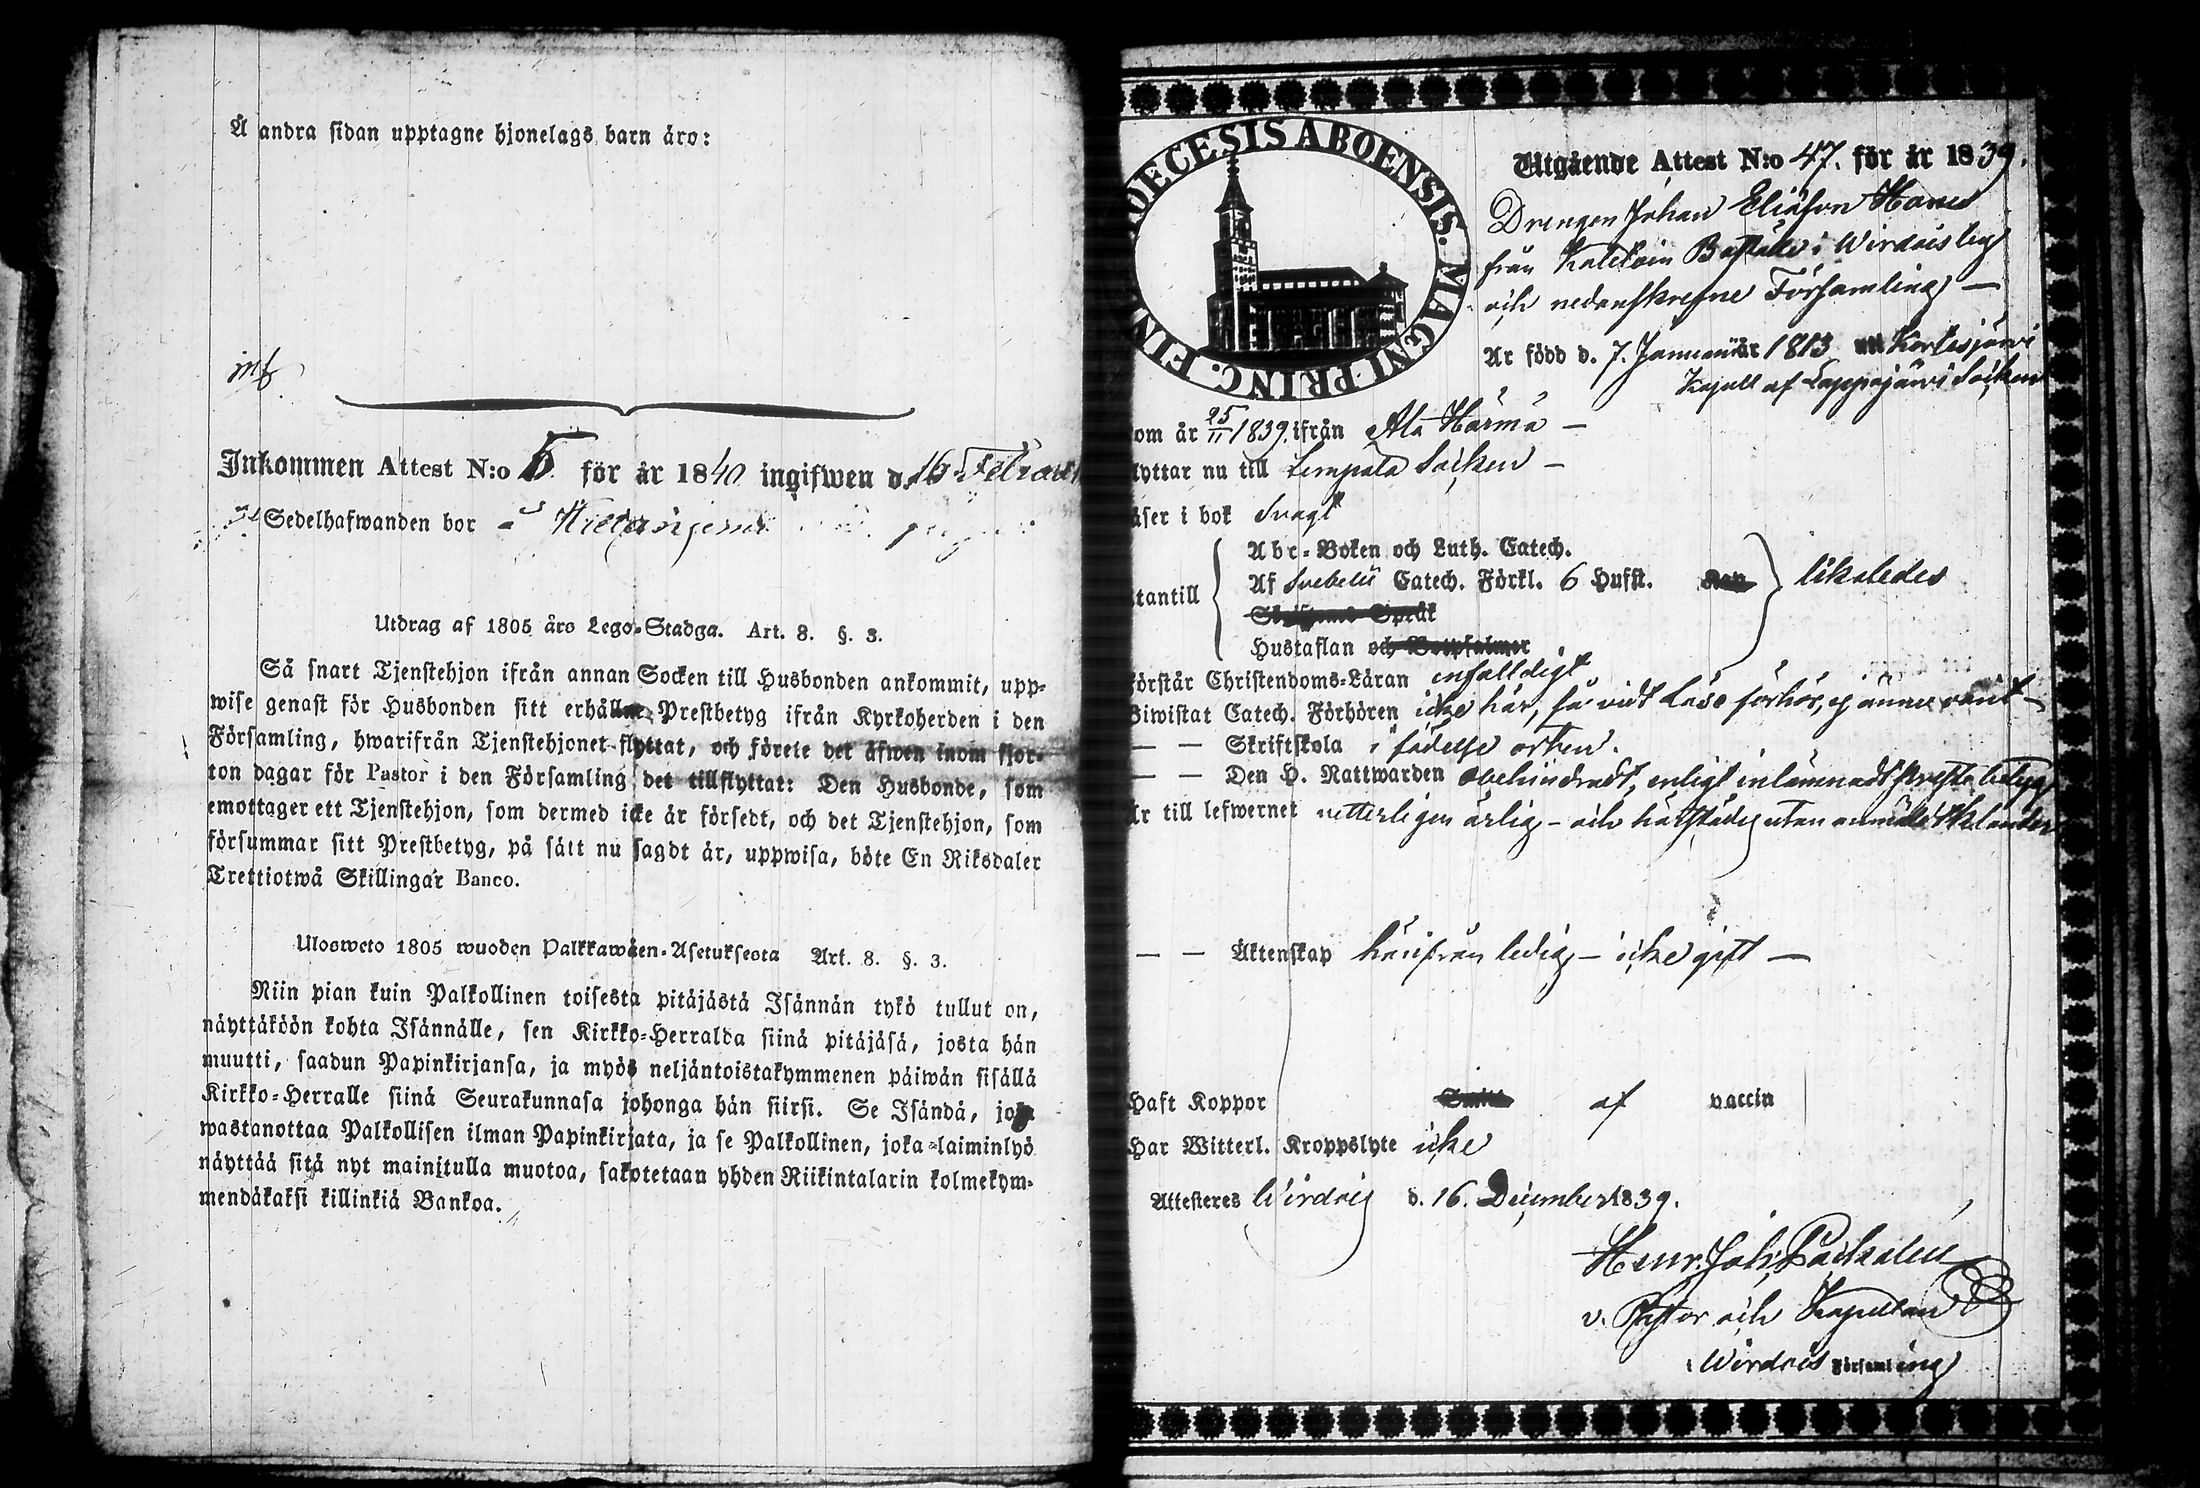 Å andra sidan upptagne hjonelags barn äro:
Inkommen Attest N:o 5 för år 1840 ingifwen d. 16 Februar
Sedelhafwanden bor
Utdrag af 1805 års Lego-Stadga. Art. 8. §. 3.
Så snart Tjenstehjon ifrån annan Socken till Husbonden ankommit, upp-
wise genast för Husbonden sitt erhållne Prestbetyg ifrån Kyrkoherden i den
Församling, hwarifrån Tjenstehjonet flyttat, och förete det äfwen inom fjor-
ton dagar för Pastor i den Församling det tillflyttat: Den Husbonde, som
emottager ett Tjenstehjon, som dermed icke är försedt, och det Tjenstehjon, som
försummar sitt Prestbetyg, på sätt nu sagdt är, uppwisa, böte En Riksdaler
Trettiotwå Skillingar Banco.
Ulosweto 1805 wuoden Palkkawäen-Asetuksesta Art. 8. §. 3.
Niin pian kuin Palkollinen toisesta pitäjästä Isännän tykö tullut on,
näyttäköön kohta Isännälle, sen Kirkko-Herralda siinä pitäjäsä, josta hän
muutti, saadun Papinkirjansa, ja myös neljäntoistakymmenen päiwän sisällä
Kirkko-Herralle siinä Seurakunnasa johonga hän siirsi. Se Isändä, joka
wastanottaa Palkollisen ilman Papinkirjata, ja se Palkollinen, joka laiminlyö
näyttää sitä nyt mainitulla muotoa, sakotetaan yhden Riikintalarin kolmekym-
mendäkaksi killinkiä Bankoa.
DECESIS ABOENSIS. MAGNI PRINC. FIN
Utgående Attest N:o 47. för år 1839.
Drengen Johan Eliasson Hanes
från Boställe i Wirdois by
och nedanskrefne Församling —
Är född d. 7. Januari år 1813 Kortesjärwi
Kapell af Lappajärwi Socken
om år 25/11 1839 ifrån Ala Härmä —
lyttar nu till Lempäla Socken —
äser i bok Svagt
tantill
Abc-Boken och Luth. Catech.
Af Svebelii Catech. Förkl. 6 Hufst. likaledes
Hustaflan och Botpsalmer
örstår Christendoms-Läran enfaldigt
Biwistat Catech. Förhören icke här, så vidt Läse förhör, ej ännu varit —
— — Skriftskola i födelse orten.
— — Den H. Nattwarden obehindradt, enligt inlämnadt Preste betyg
är till lefwernet vetterligen ärlig — och härstädes utan anmäldt klander
— — Äktenskap härifrån ledig — icke gift —
Haft Koppor af vaccin
Har Witterl. Kroppslyte icke
Attesteres Wirdois d. 16. December 1839.
Henr. Joh.
v. Pastor och Kapellan
i Wirdois Församling